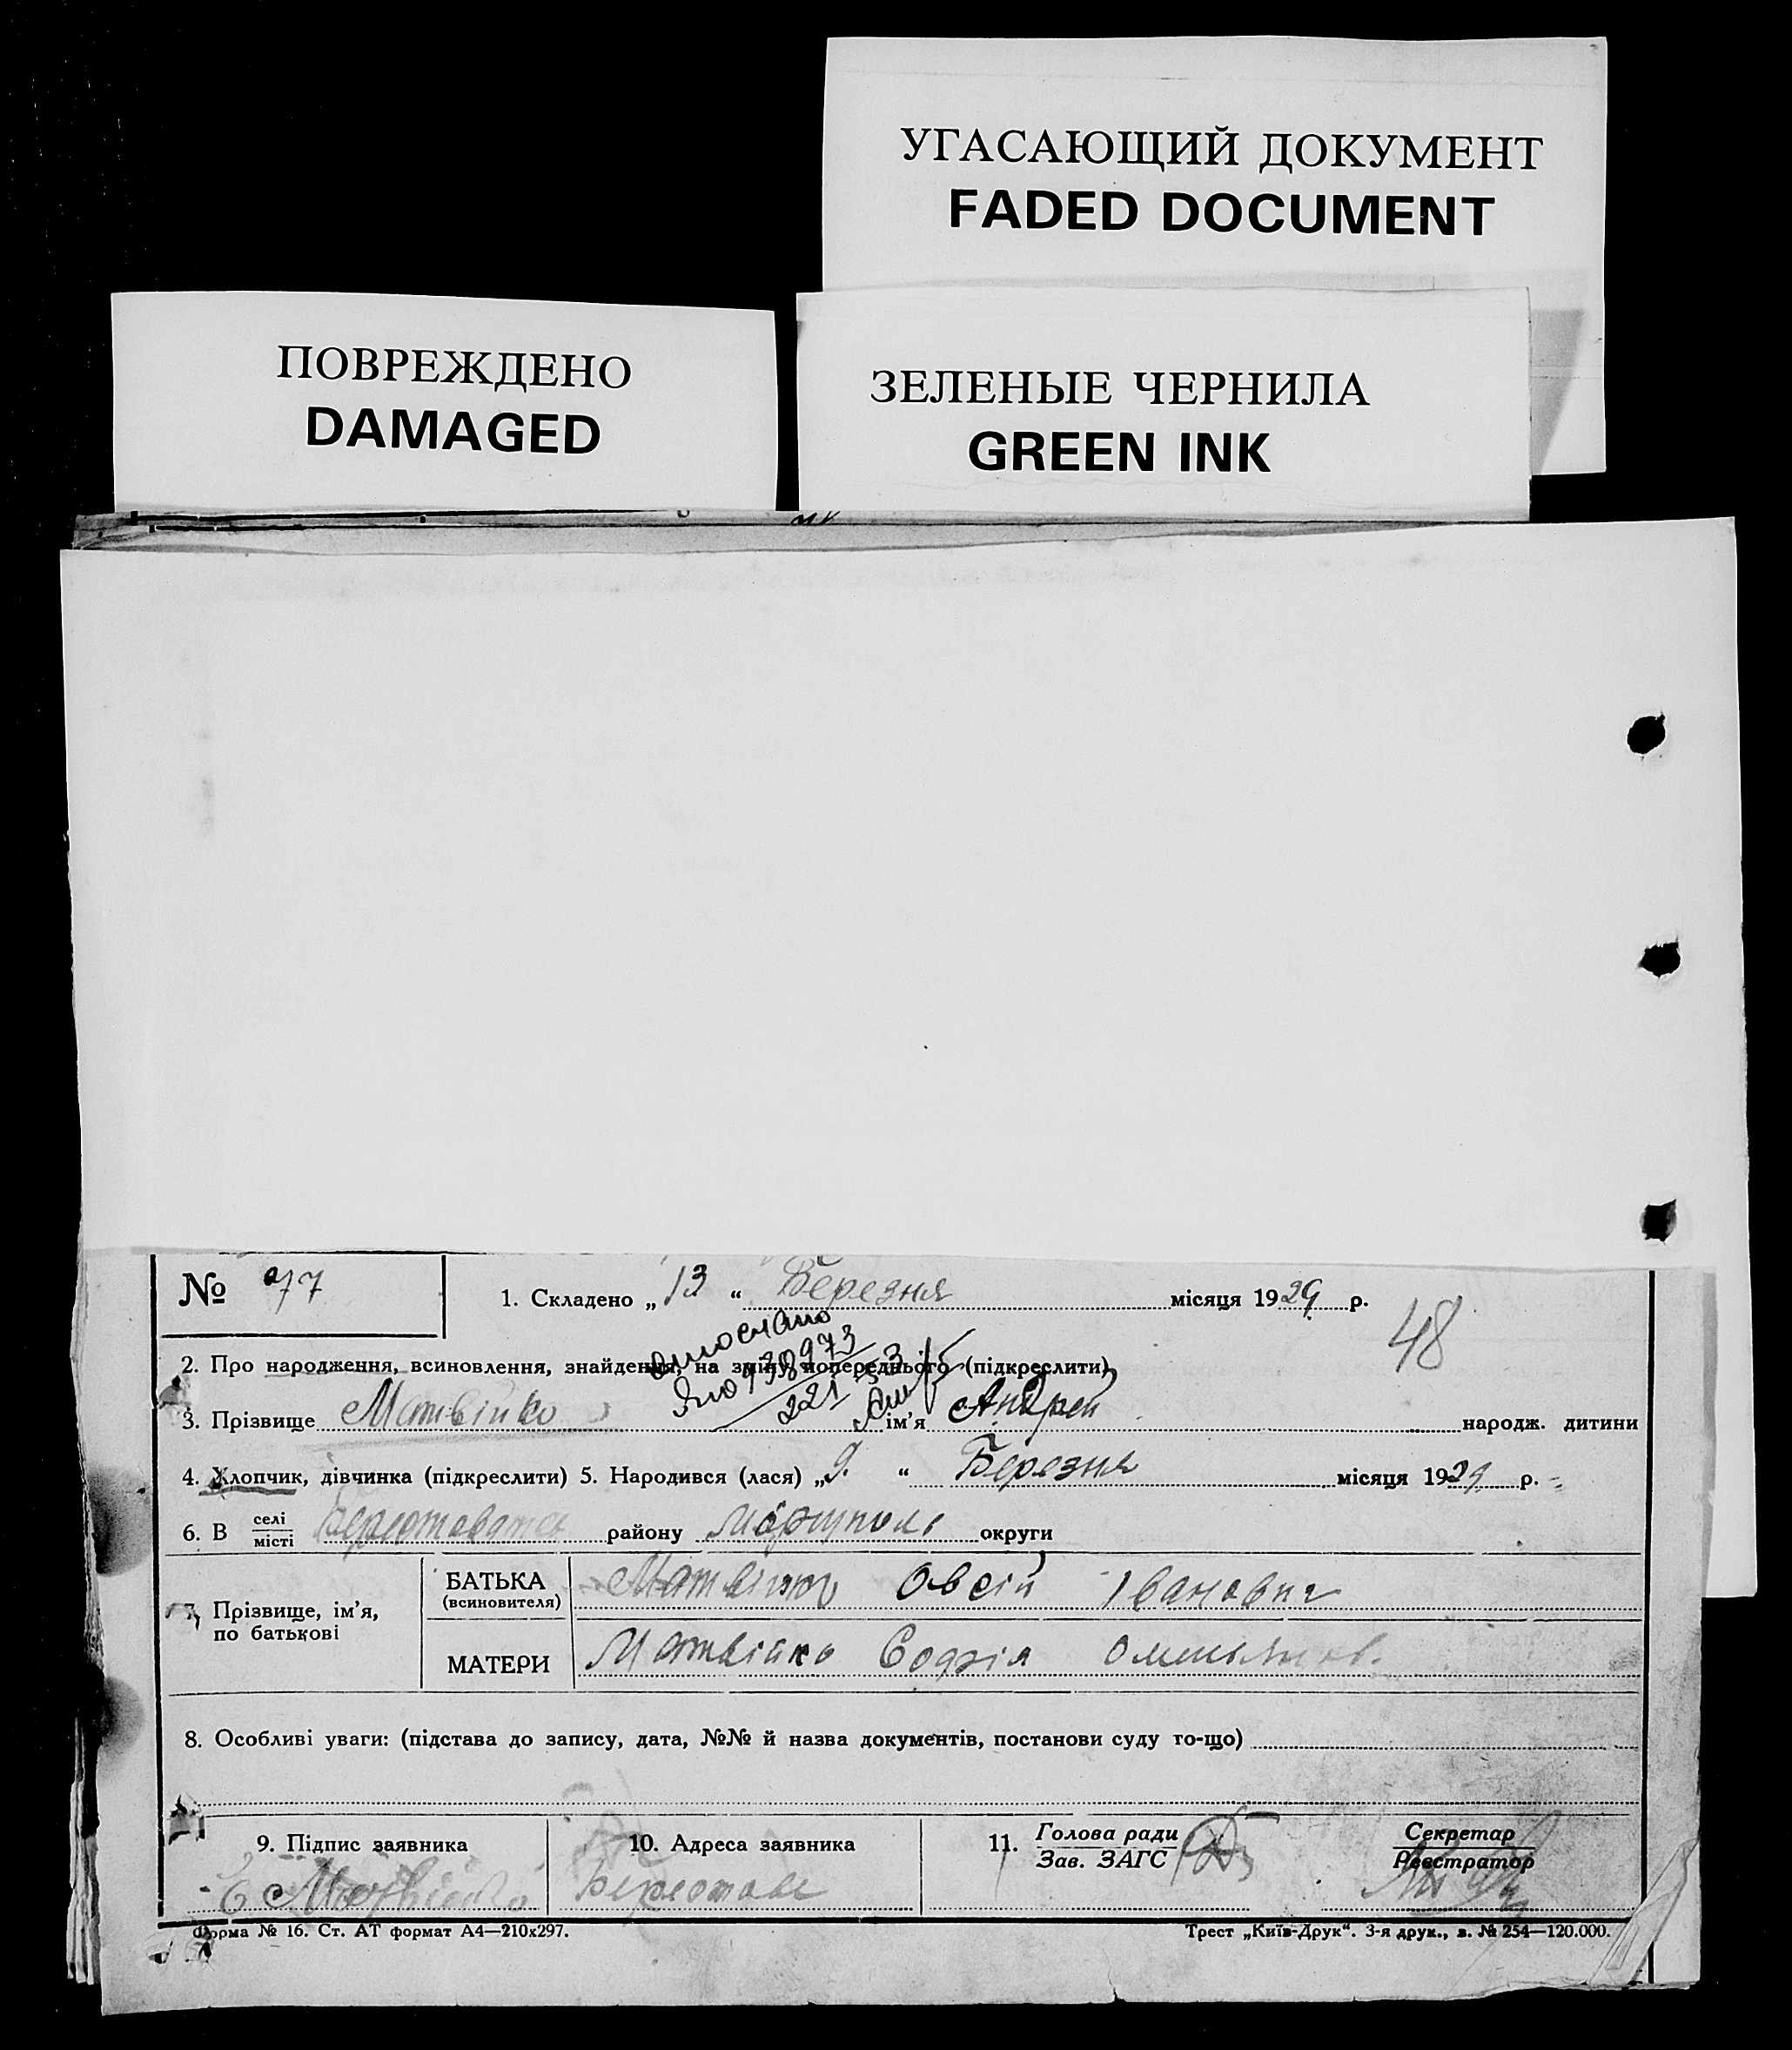 УГАСАЮЩИЙ ДОКУМЕНТ
FADED DOCUMENT
ПОВРЕЖДЕНО
DAMAGED
ЗЕЛЕНЫЕ ЧЕРНИЛА
GREEN INK
№ 77
1. Складено „13“ Березня місяця 1929 р.
48
2. Про народження, всиновлення, знайдення, на зміну попереднього (підкреслити)
3. Прізвище Матвійко ім'я Андрей народж. дитини
4. Хлопчик, дівчинка (підкреслити) 5. Народився (лася) „9.“ Березня місяця 1929 р.
6. В селі місті району Маріупель округи
7. Прізвище, ім'я, по батькові
БАТЬКА (всиновителя) Матвійко Овсій Іванович
МАТЕРИ Матвійко Софія
8. Особливі уваги: (підстава до запису, дата, №№ й назва документів, постанови суду то-що)
9. Підпис заявника
Є Матвійко
10. Адреса заявника
Берестове
11. Голова ради Зав. ЗАГС
Секретар Реєстратор
Форма № 16. Ст. АТ формат А4—210х297.
Трест „Київ-Друк“. 3-я друк., з. № 254—120.000.